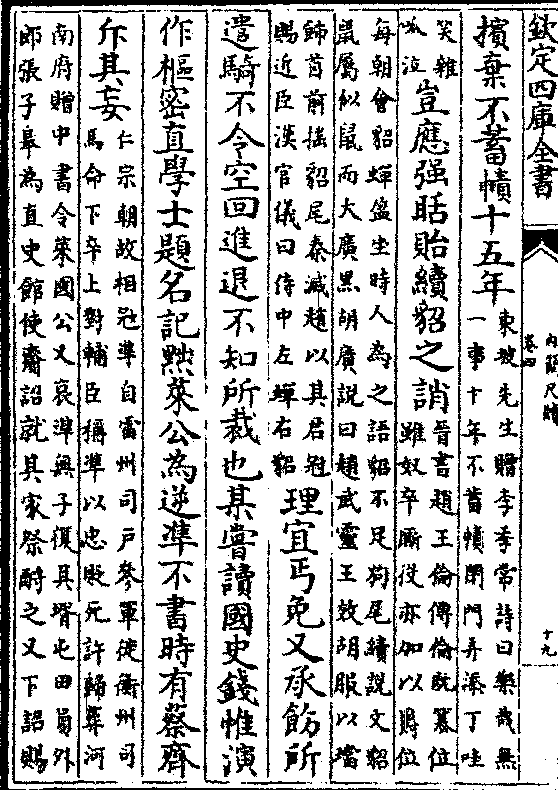 欽定四庫全書
內簡尺牘
卷四
十九
擯棄不蓄幘十五年
東坡先生贈李季常詩曰樂哉無
一事十年不蓄幘閉門弄添丁哇
笑雜
呱泣
豈應强聒貽續貂之誚
晉書趙王倫傳倫既簒位
雖奴卒厮役亦加以爵位
每朝會貂蟬盈坐時人為之語貂不足狗尾續說文貂
鼠屬似鼠而大廣黑胡廣說曰趙武靈王效胡服以璫
飾首前揺貂尾秦滅趙以其君冠
賜近臣漢官儀曰侍中左蟬右貂
理宜丐免又承飭所
遣騎不令空回進退不知所裁也某嘗讀國史錢惟演
作樞密直學士題名記黙萊公為逆準不書時有蔡齊
斥其妄
仁宗朝故相冦準自雷州司戸參軍徙衡州司
馬命下卒上對輔臣稱準以忠貶死許歸葬河
南府贈中書令萊國公又哀準無子復其壻屯田員外
郎張子臯為直史館使齎詔就其家祭酹之又下詔賜